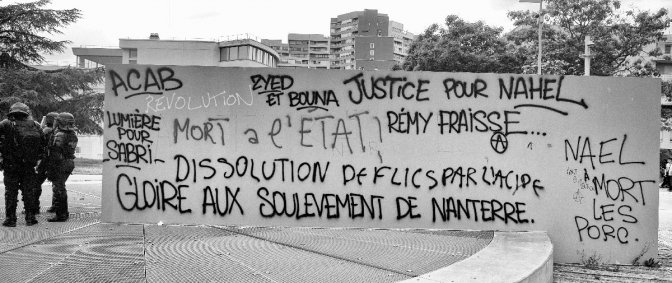 ACAB
REVOLUTION
ZYED
ET BOUNA
JUSTICE POUR NAHEL
LUMIÈRE
POUR
SABRI
MORT a l'ETAT!
RÉMY FRAISSE...
DISSOLUTION DE FLICS PAR L'ACIDE
GLOIRE AUX SOULEVEMENT DE NANTERRE.
NAEL
A MORT
LES
PORC.